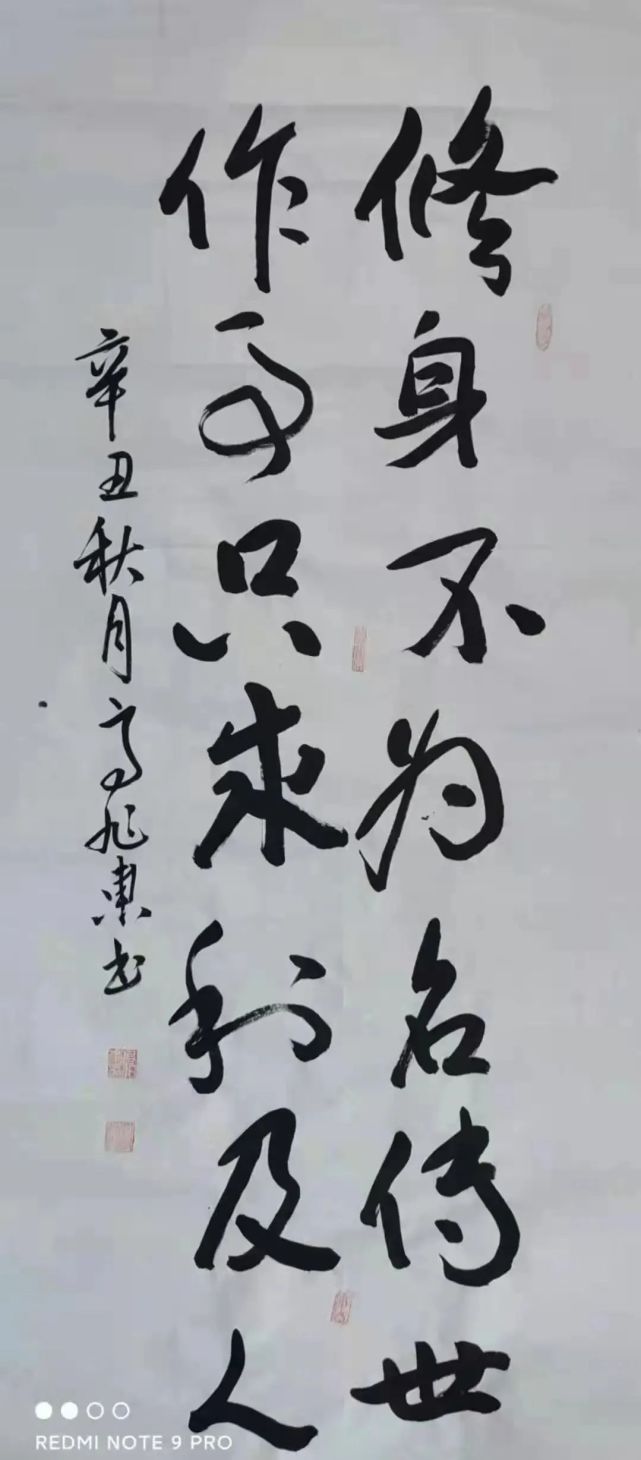 修身不为名传世
作事只求利及人
辛丑秋月高旭東书
REDMI NOTE 9 PRO